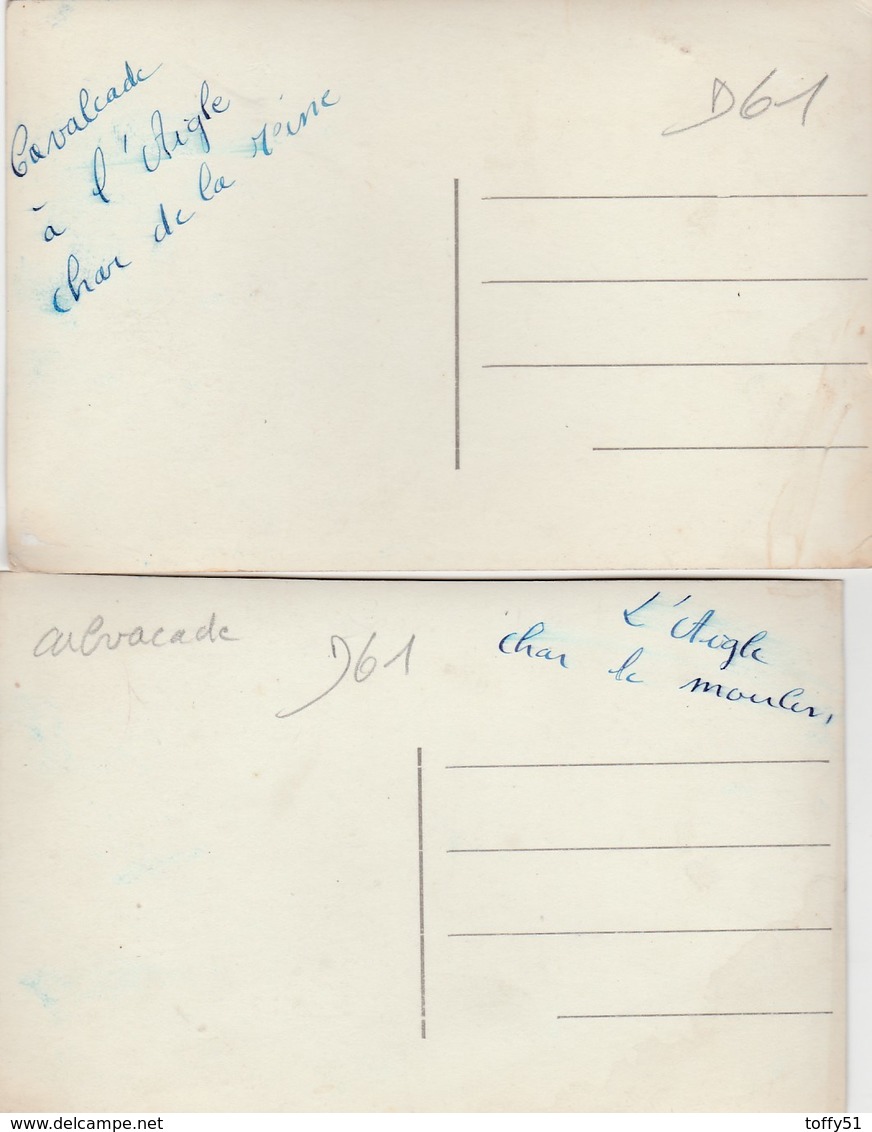 Cavalcade
à l'Aigle
char de la reine
D61
calvacade
D61
L'Aigle
char le moulin,
toffy51